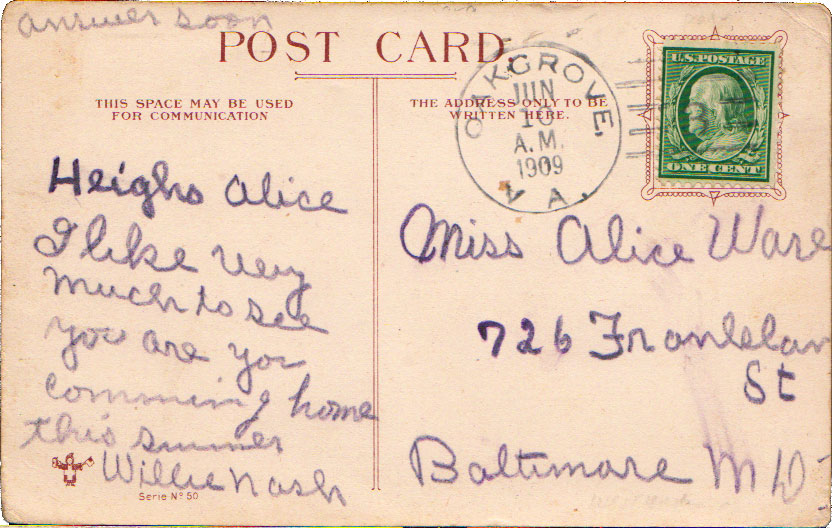 answer soon
POST CARD
THIS SPACE MAY BE USED
FOR COMMUNICATION
THE ADDRESS ONLY TO BE
WRITTEN HERE.
OAKGROVE,
JUN
10
A.M.
1909
VA.
U.S. POSTAGE
ONE CENT
Heigho Alice
I like very
much to see
you are you
comming home
this summer
Willie Nash
Serie No 50
Miss Alice Ware
726
St
Baltimore MD